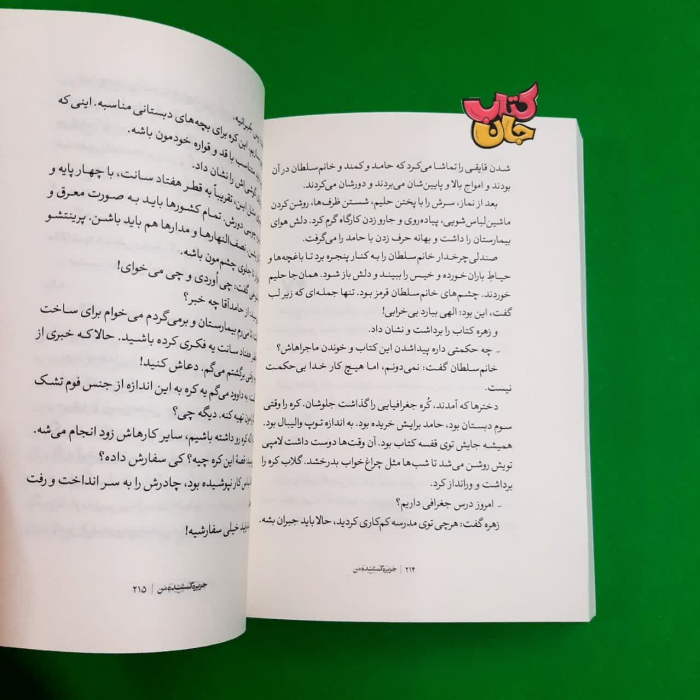 کتاب
جان
شدن قایقی را تماشا می‌کرد که حامد و کمند و خانم‌سلطان در آن
بودند و امواج بالا و پایین‌شان می‌بردند و دورشان می‌کردند.
بعد از نماز، سرش را با پختن حلیم، شستن ظرف‌ها، روشن کردن
ماشین‌لباس‌شویی، پیاده‌روی و جارو زدن کارگاه گرم کرد. دلش هوای
بیمارستان را داشت و بهانه حرف زدن با حامد را می‌گرفت.
صندلی چرخدار خانم‌سلطان را به کنار پنجره برد تا باغچه‌ها و
حیاطِ باران خورده و خیس را ببیند و دلش باز شود. همان‌جا حلیم
خوردند. چشم‌های خانم‌سلطان قرمز بود. تنها جمله‌ای که زیر لب
گفت، این بود: الهی بباره بی‌خرابی!
و زهره کتاب را برداشت و نشان داد.
- چه حکمتی داره پیداشدن این کتاب و خوندن ماجراهاش؟
خانم‌سلطان گفت: نمی‌دونم، اما هیچ کار خدا بی‌حکمت
نیست.
دخترها که آمدند، کُره جغرافیایی را گذاشت جلوشان. کره را وقتی
سوم دبستان بود، حامد برایش خریده بود. به اندازه توپ والیبال بود.
همیشه جایش توی قفسه کتاب بود. آن وقت‌ها دوست داشت لامپی
تویش روشن می‌شد تا شب‌ها مثل چراغ‌خواب بدرخشد. گلاب کره را
برداشت و ورانداز کرد.
- امروز درس جغرافی داریم؟
زهره گفت: هرچی توی مدرسه کم‌کاری کردید، حالا باید جبران بشه.
۲۱۴ |
این کره برای بچه‌های دبستانی مناسبه. اینی که
مناسب با قد و قواره خودمون باشه.
را نشان داد.
تقریباً به قطر هفتاد سانت، با چهار پایه و
دورش. تمام کشورها باید به صورت معرق و
نصف‌النهارها و مدارها هم باید باشن. پرینتشو
جلوی چشم‌مون باشه.
گفت: چی آوردی و چی می‌خوای؟
از حامدآقا چه خبر؟
بیمارستان و برمی‌گردم می‌خوام برای ساخت
هفتاد سانت یه فکری کرده باشید. حالاکه خبری از
برگشتم می‌گم. دعاش کنید!
به داوود می‌گم یه کره به این اندازه از جنس فوم تشک
تهیه کنه. دیگه چی؟
کره رو داشته باشیم، سایر کارهاش زود انجام می‌شه.
قصهٔ این کره چیه؟ کی سفارش داده؟
کار نپوشیده بود، چادرش را به سر انداخت و رفت
خیلی سفارشیه!
| ۲۱۵